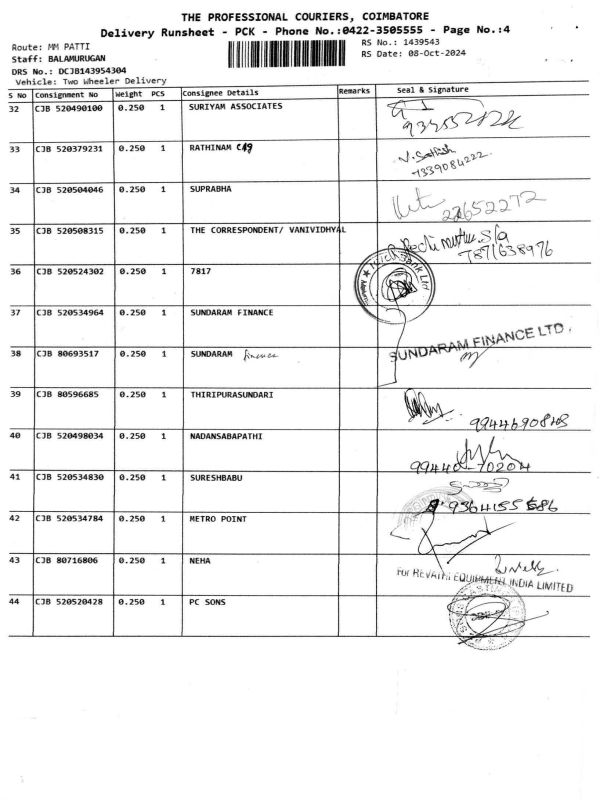 THE PROFESSIONAL COURIERS, COIMBATORE
Delivery Runsheet - PCK - Phone No.:0422-3505555 - Page No.:4
Route: MM PATTI
RS No.: 1439543
Staff: BALAMURUGAN
RS Date: 08-Oct-2024
DRS No.: DCJB143954304
Vehicle: Two Wheeler Delivery
S No Consignment No Weight PCS Consignee Details Remarks Seal & Signature
32 CJB 520490100 0.250 1 SURIYAM ASSOCIATES
33 CJB 520379231 0.250 1 RATHINAM V. Sathish
7339084222
34 CJB 520504046 0.250 1 SUPRABHA
22652272
35 CJB 520508315 0.250 1 THE CORRESPONDENT/ VANIVIDHYAL
7871638976
36 CJB 520524302 0.250 1 7817
Bank Ltd
37 CJB 520534964 0.250 1 SUNDARAM FINANCE
SUNDARAM FINANCE LTD.
38 CJB 80693517 0.250 1 SUNDARAM finance
39 CJB 80596685 0.250 1 THIRIPURASUNDARI
40 CJB 520498034 0.250 1 NADANSABAPATHI
99440-70204
41 CJB 520534830 0.250 1 SURESHBABU
42 CJB 520534784 0.250 1 METRO POINT
43 CJB 80716806 0.250 1 NEHA
For REVATHI EQUIPMENT INDIA LIMITED
44 CJB 520520428 0.250 1 PC SONS